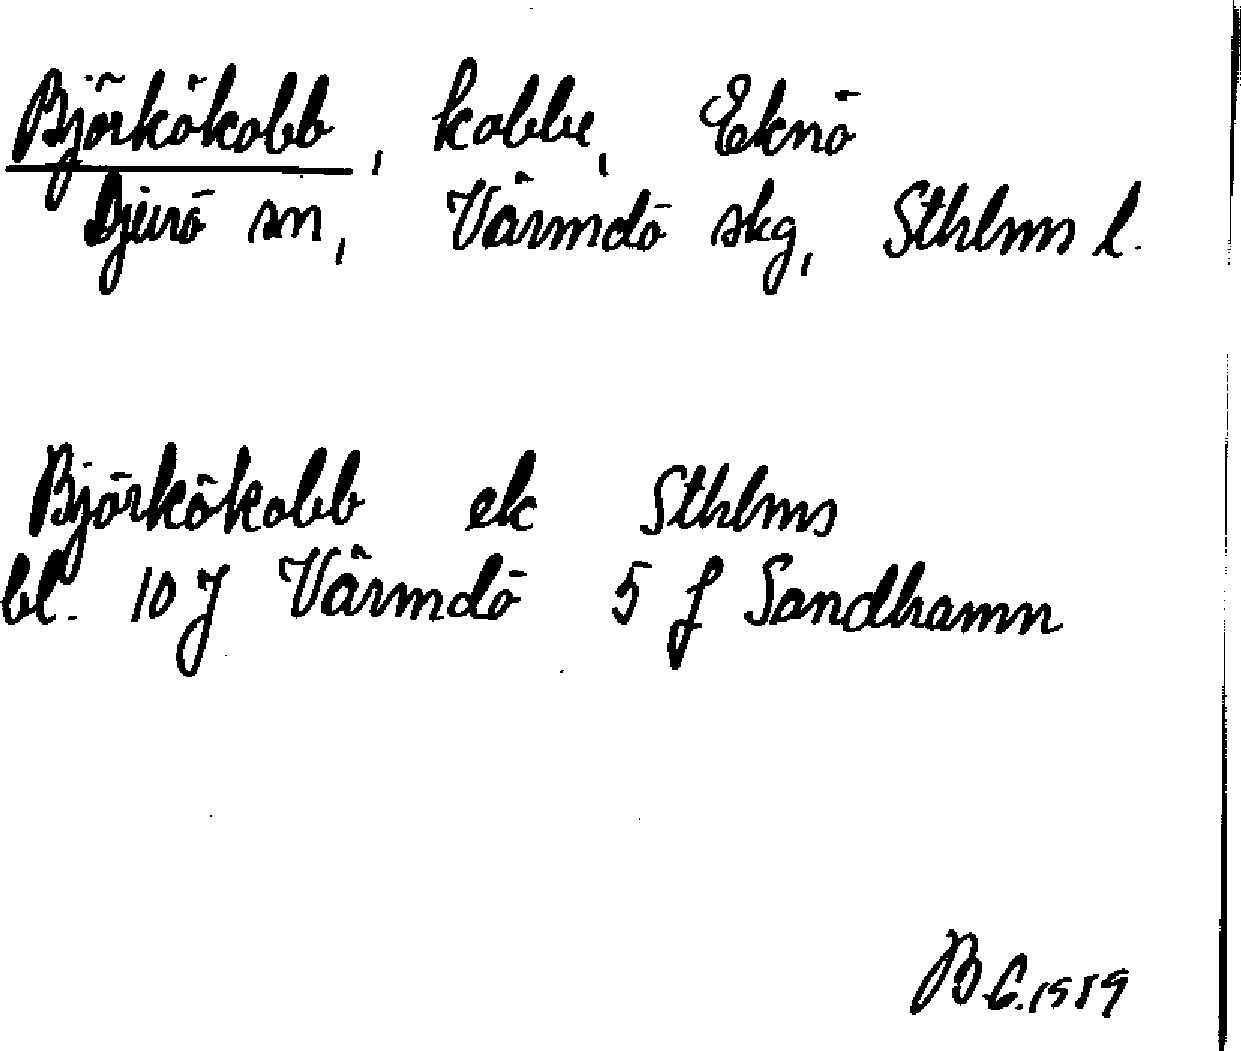 Björkökobb, kobbe, Eknö
Djurö sn, Värmdö skg, Sthlms l.
Björkökobb ek Sthlms
bl. 10 J Värmdö 5 f Sandhamn